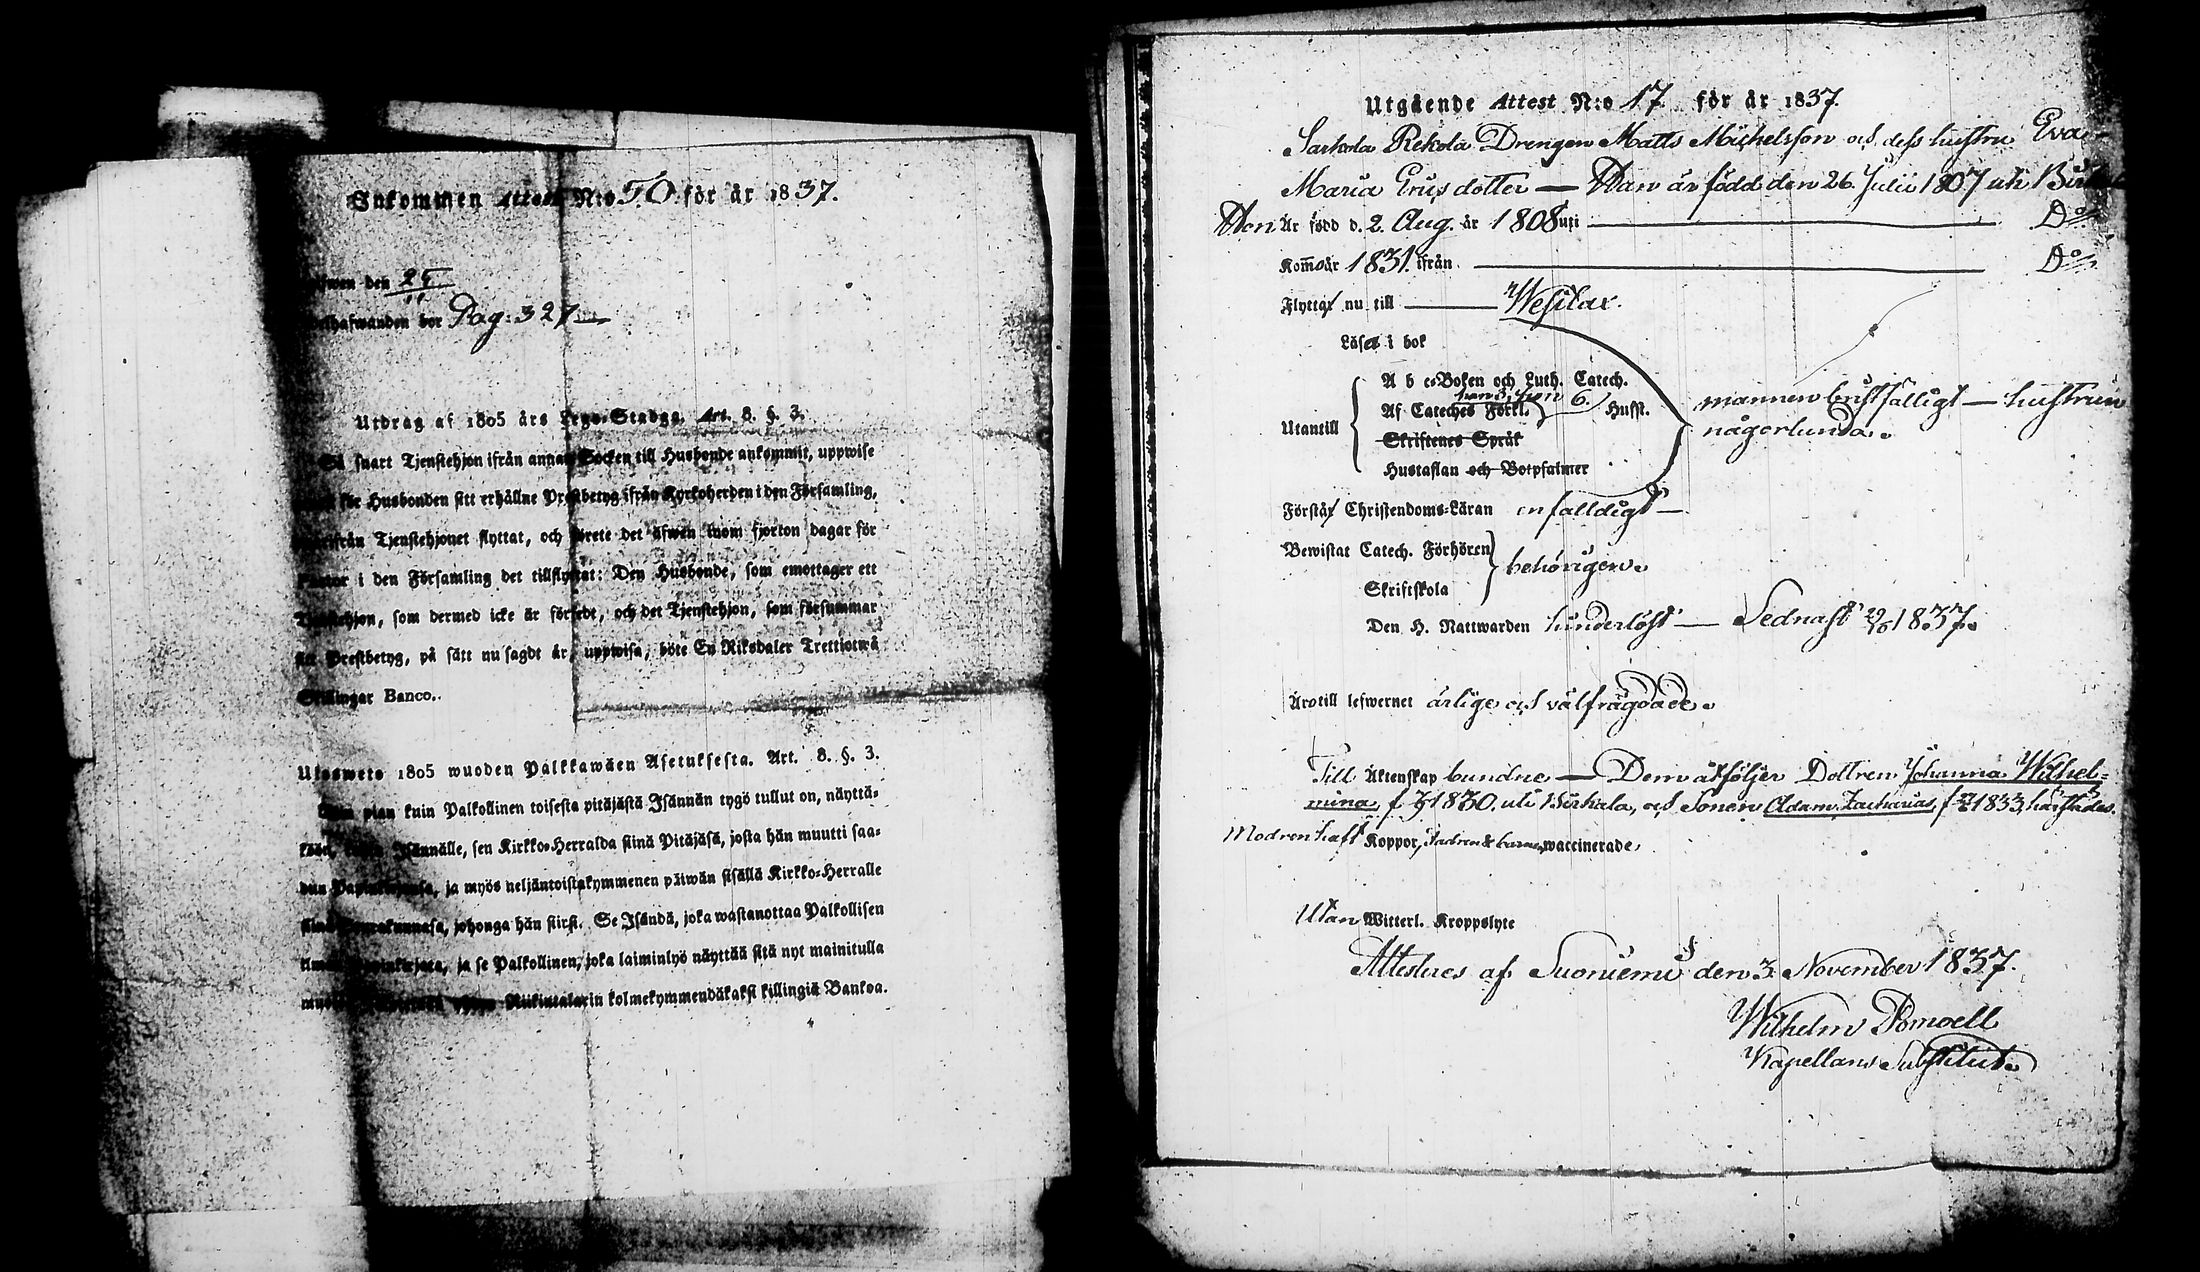 Inkommen Attest N:o 50 för år 1837.
den 25/11
Pag: 327
Utdrag af 1805 års Lego-Stadga. Art. 8. §. 3.
Så snart Tjenstehjon ifrån annan Socken till Husbonde ankommit, uppwise
för Husbonden sitt erhållne Prestbetyg ifrån Kyrkoherden i den Församling,
Tjenstehjonet flyttat, och förete det äfwen inom fjorton dagar för
Pastor i den Församling det tillflyttat: Den Husbonde, som emottager ett
Tjenstehjon, som dermed icke är försedt, och det Tjenstehjon, som försummar
Prestbetyg, på sätt nu sagdt är, uppwisa, böte En Riksdaler Trettiotwå
Skillingar Banco.
Uloswets 1805 wuoden Palkkawäen Asetuksesta. Art. 8. §. 3.
pian kuin Palkollinen toisesta pitäjästä Isännän tygö tullut on, näyttä-
Isännälle, sen Kirkko-Herralda siinä Pitäjäsä, josta hän muutti saa-
dun ja myös neljäntoistakymmenen päiwän sisällä Kirkko-Herralle
johonga hän siirsi. Se Isändä, joka wastanottaa Palkollisen
ja se Palkollinen, joka laiminlyö näyttää sitä nyt mainitulla
Riikintalarin kolmekymmendäkaksi killingiä Bankoa.
Utgående Attest N:o 17 för år 1837.
Sarkola Rekola Drengen Matts Michelsson och dess hustru Eva
Maria Ersdotter — Han är född den 26. Julii 1807 uti
Hon Är född d. 2. Aug. år 1808 uti — Do
Kom år 1831 ifrån — Do
Flytta nu till — Wesilax.
Läsa i bok
A b c-Boken och Luth. Catech.
Af Cateches Förkl. han 3, hon 6. Hufst.
Utantill
Skriftenes Språk
Hustaflan och Botpsalmer
mannen bristfälligt — hustrun
någorlunda.
Förstå Christendoms-Läran enfalldigt —
Bewistat Catech. Förhören
Skriftskola
behörigen.
Den H. Nattwarden hinderlöst — Sednast 1837.
Äro till lefwernet ärlige och välfrägdade.
Till Äktenskap bundne — Dem åtföljer Dottren Johanna Wilhel-
mina, f 1830. uti Birkala, och Sonen Adam Zacharias, f 1833, härstädes.
Modren haft Koppor, Fadren & barnen waccinerade,
Utan Witterl. Kroppslyte
Attesteras af Suoniemi den 3 November 1837.
Wilhelm Pomoell
Kapellans Substitut.